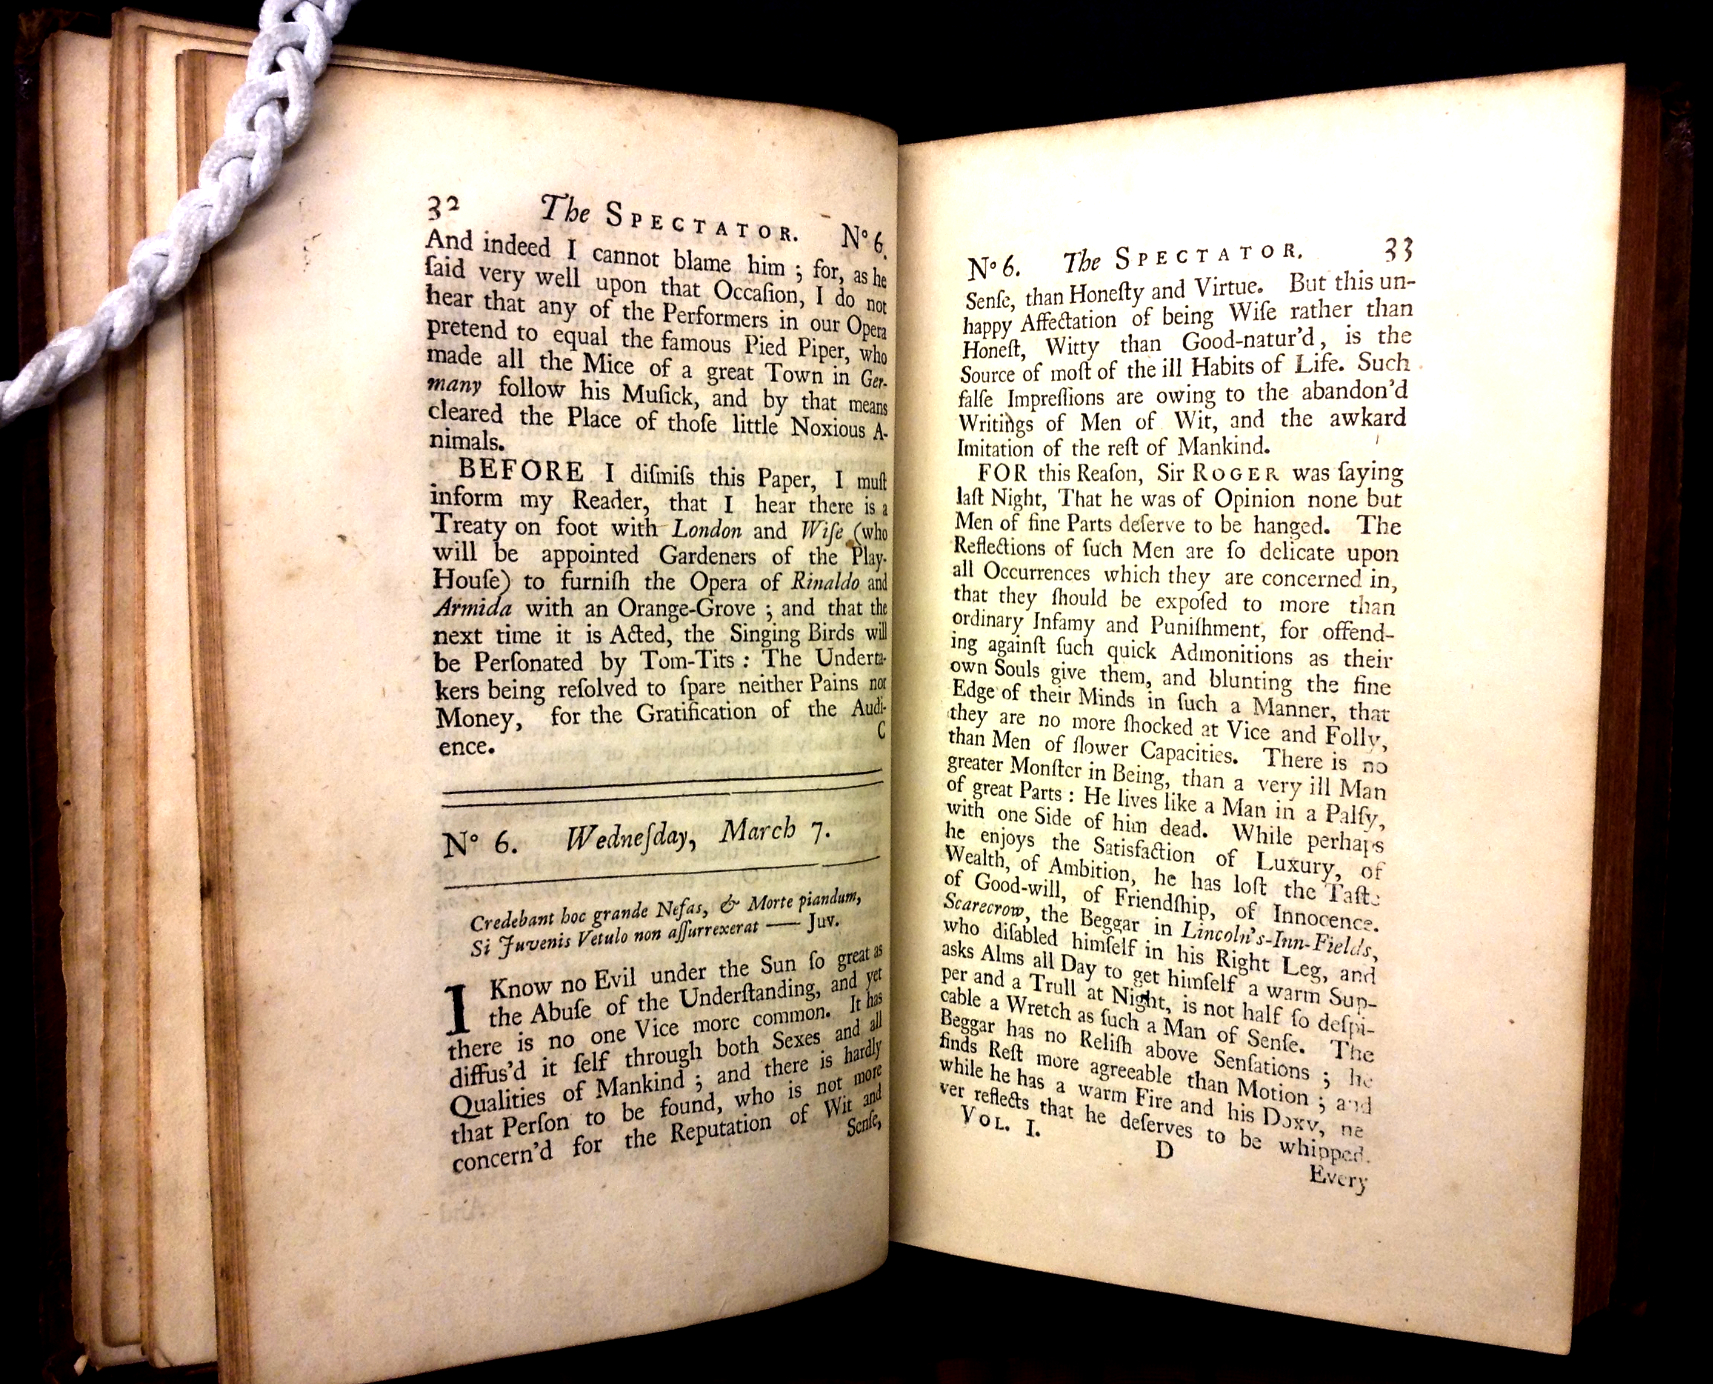 32 The SPECTATOR. Nº 6.
And indeed I cannot blame him ; for, as he
ſaid very well upon that Occaſion, I do not
hear that any of the Performers in our Opera
pretend to equal the famous Pied Piper, who
made all the Mice of a great Town in Ger-
many follow his Muſick, and by that means
cleared the Place of thoſe little Noxious A-
nimals.
BEFORE I diſmiſs this Paper, I muſt
inform my Reader, that I hear there is a
Treaty on foot with London and Wiſe (who
will be appointed Gardeners of the Play-
Houſe) to furniſh the Opera of Rinaldo and
Armida with an Orange-Grove ; and that the
next time it is Acted, the Singing Birds will
be Perſonated by Tom-Tits : The Underta-
kers being reſolved to ſpare neither Pains nor
Money, for the Gratification of the Audi-
ence. C
Nº 6. Wedneſday, March 7.
Credebant hoc grande Nefas, & Morte piandum,
Si Juvenis Vetulo non aſſurrexerat — Juv.
I Know no Evil under the Sun ſo great as
the Abuſe of the Underſtanding, and yet
there is no one Vice more common. It has
diffus'd it ſelf through both Sexes and all
Qualities of Mankind ; and there is hardly
that Perſon to be found, who is not more
concern'd for the Reputation of Wit and
Senſe,
Nº 6. The SPECTATOR. 33
Senſe, than Honeſty and Virtue. But this un-
happy Affectation of being Wiſe rather than
Honeſt, Witty than Good-natur'd, is the
Source of moſt of the ill Habits of Life. Such
falſe Impreſſions are owing to the abandon'd
Writings of Men of Wit, and the awkard
Imitation of the reſt of Mankind.
FOR this Reaſon, Sir ROGER was ſaying
laſt Night, That he was of Opinion none but
Men of fine Parts deſerve to be hanged. The
Reflections of ſuch Men are ſo delicate upon
all Occurrences which they are concerned in,
that they ſhould be expoſed to more than
ordinary Infamy and Puniſhment, for offend-
ing againſt ſuch quick Admonitions as their
own Souls give them, and blunting the fine
Edge of their Minds in ſuch a Manner, that
they are no more ſhocked at Vice and Folly,
than Men of ſlower Capacities. There is no
greater Monſter in Being, than a very ill Man
of great Parts : He lives like a Man in a Palſy,
with one Side of him dead. While perhaps
he enjoys the Satisfaction of Luxury, of
Wealth, of Ambition, he has loſt the Taſte
of Good-will, of Friendſhip, of Innocence.
Scarecrow, the Beggar in Lincoln's-Inn-Fields,
who diſabled himſelf in his Right Leg, and
asks Alms all Day to get himſelf a warm Sup-
per and a Trull at Night, is not half ſo deſpi-
cable a Wretch as ſuch a Man of Senſe. The
Beggar has no Reliſh above Senſations ; he
finds Reſt more agreeable than Motion ; and
while he has a warm Fire and his Doxy, ne
ver reflects that he deſerves to be whipped.
VOL. I. D Every